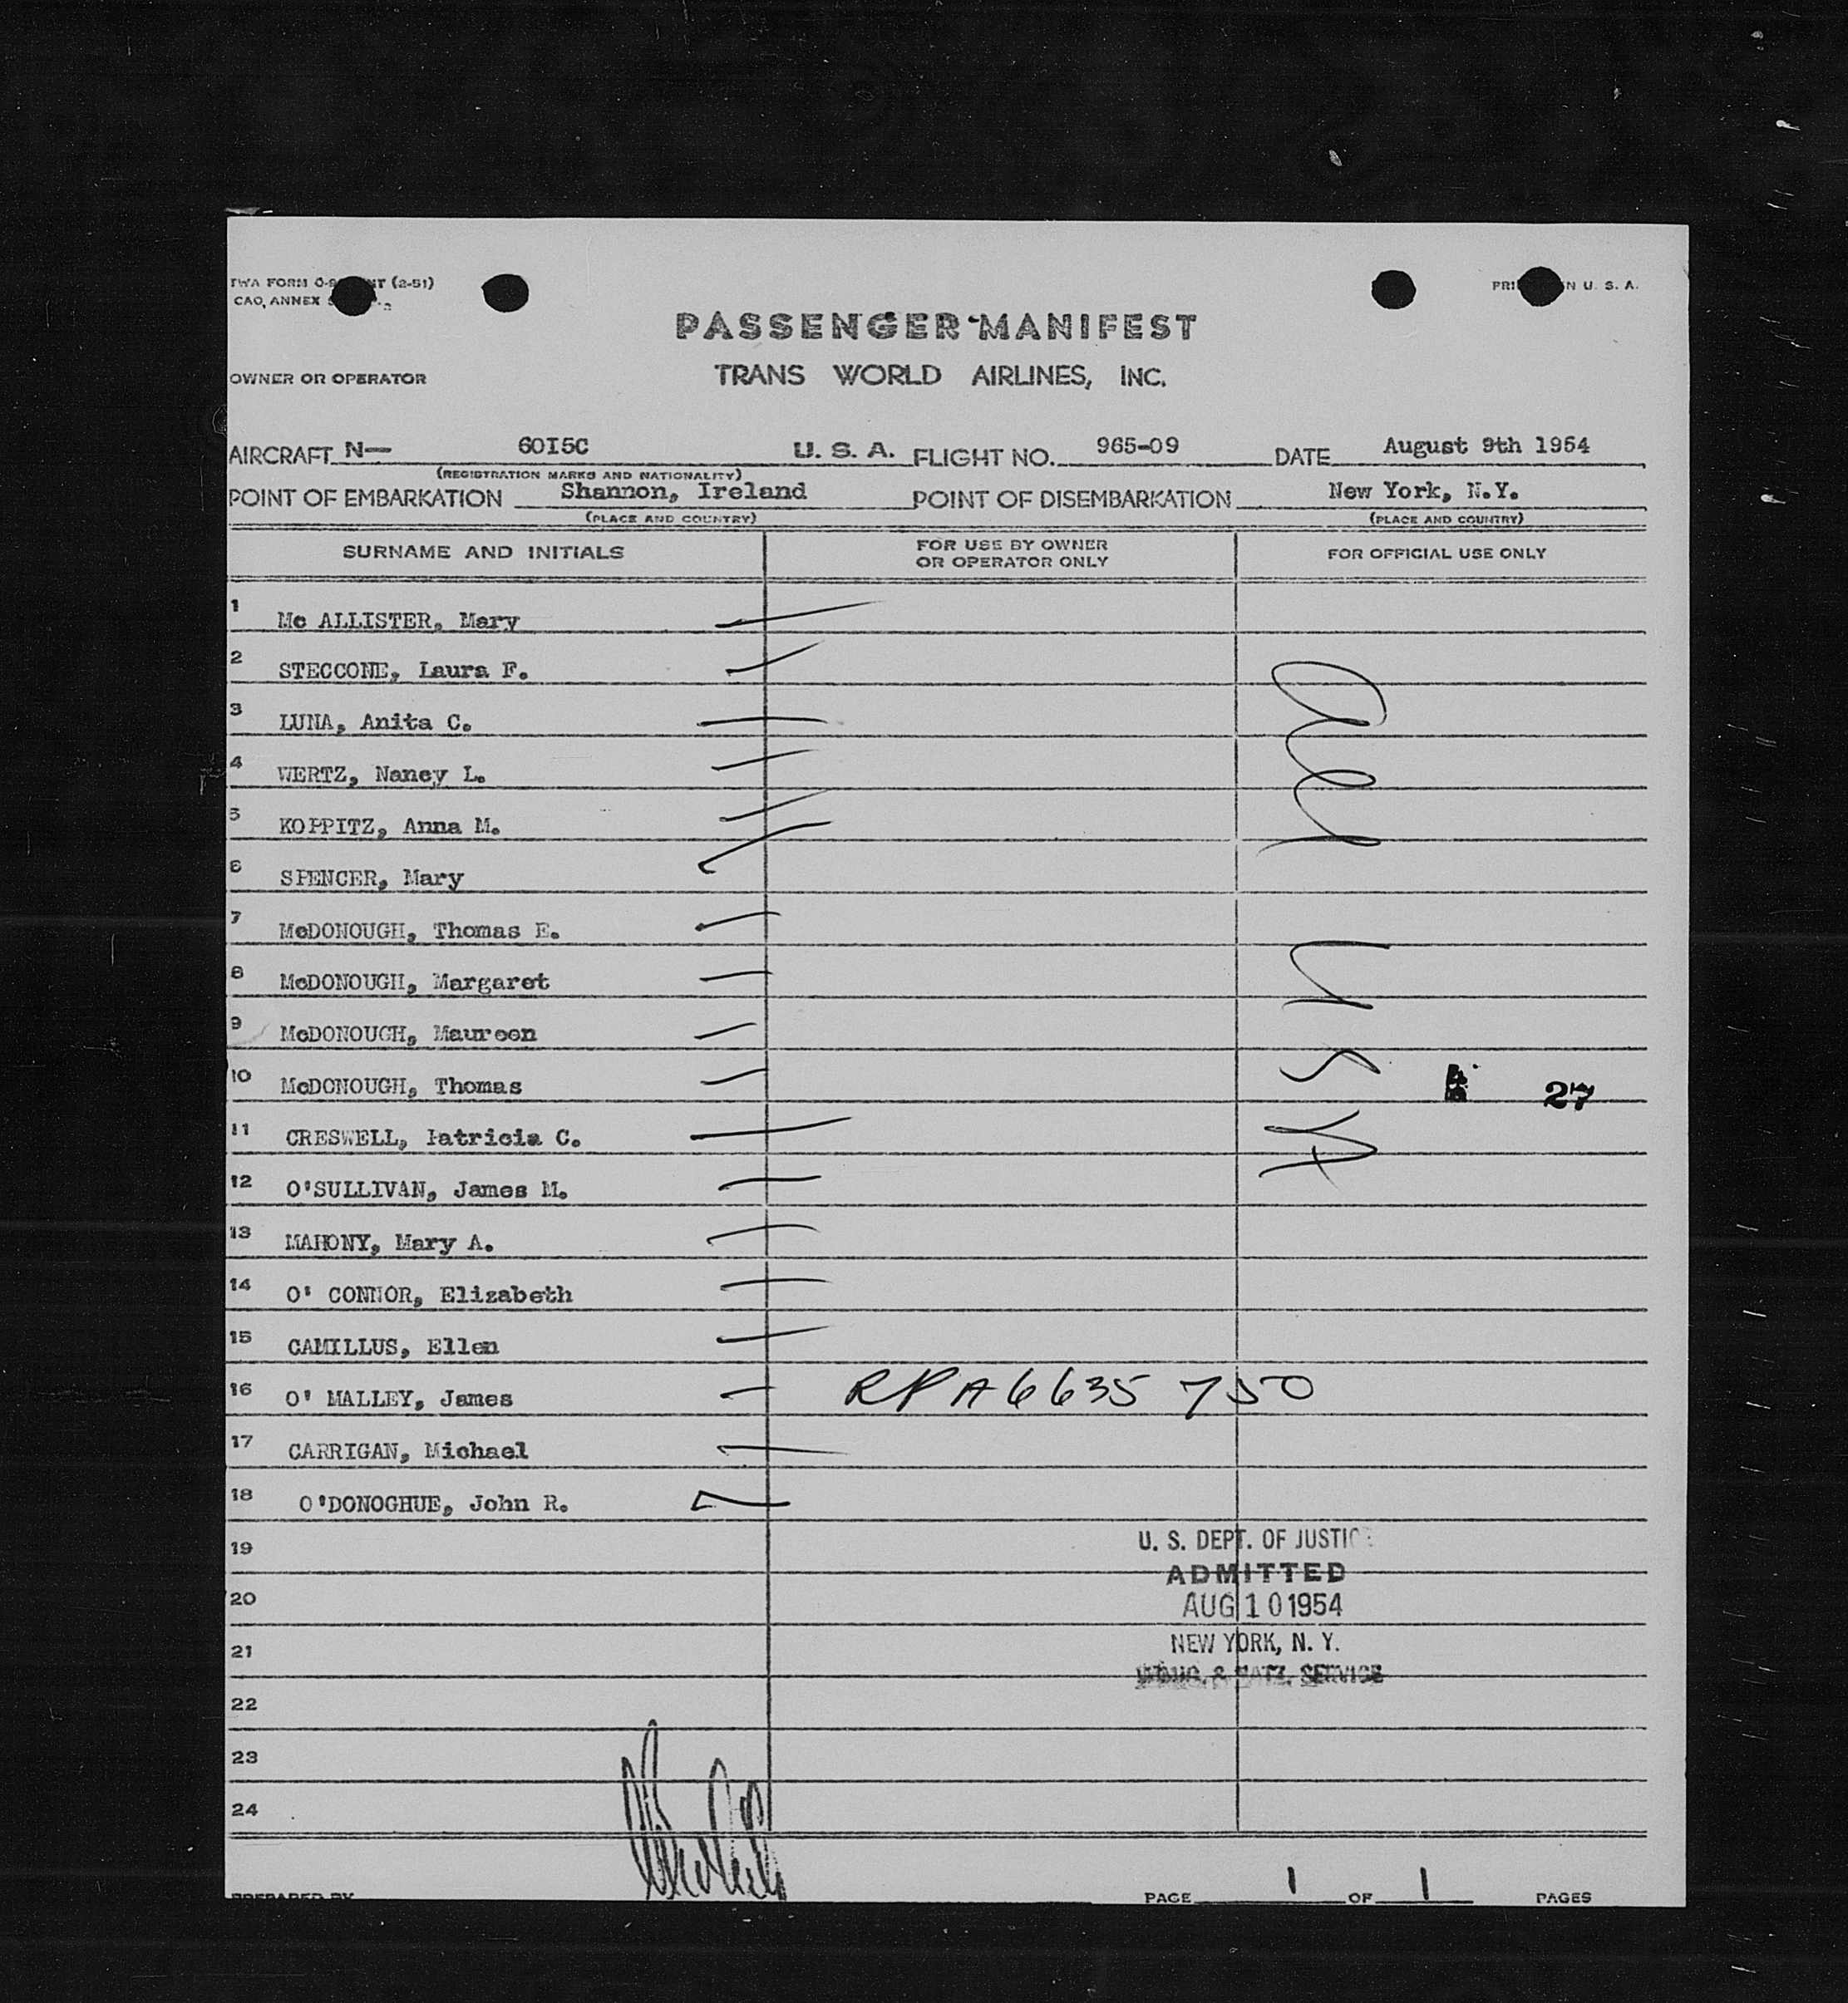 TWA FORM (2-51)
CAO, ANNEX
PRINTED IN U. S. A.
PASSENGER MANIFEST
OWNER OR OPERATOR
TRANS WORLD AIRLINES, INC.
AIRCRAFT N— 60I5C U. S. A. FLIGHT NO. 965-09 DATE August 9th 1954
(REGISTRATION MARKS AND NATIONALITY)
POINT OF EMBARKATION Shannon, Ireland POINT OF DISEMBARKATION New York, N.Y.
(PLACE AND COUNTRY) (PLACE AND COUNTRY)
SURNAME AND INITIALS FOR USE BY OWNER OR OPERATOR ONLY FOR OFFICIAL USE ONLY
1 Mc ALLISTER, Mary
2 STECCONE, Laura F.
3 LUNA, Anita C.
4 WERTZ, Nancy L.
5 KOPPITZ, Anna M.
6 SPENCER, Mary
7 McDONOUGH, Thomas E.
8 McDONOUGH, Margaret
9 McDONOUGH, Maureen
10 McDONOUGH, Thomas 27
11 CRESWELL, Patricia C.
12 O'SULLIVAN, James M.
13 MAHONY, Mary A.
14 O' CONNOR, Elizabeth
15 CAMILLUS, Ellen
16 O' MALLEY, James RP A6635 750
17 CARRIGAN, Michael
18 O'DONOGHUE, John R.
all USA
19
20
21
22
23
24
U. S. DEPT. OF JUSTICE
ADMITTED
AUG 10 1954
NEW YORK, N. Y.
IMMIG. & NATZ. SERVICE
PREPARED BY PAGE 1 OF 1 PAGES